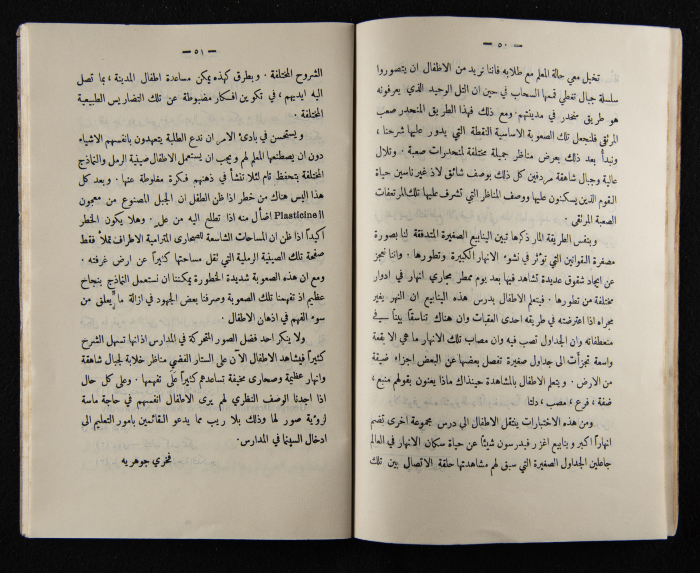 — ٥٠ —
تخيل معي حالة المعلم مع طلابه فاننا نريد من الاطفال ان يتصوروا
سلسلة جبال تغطي قممها السحاب في حين ان التل الوحيد الذي يعرفونه
هو طريق منحدر في مدينتهم. ومع ذلك فهذا الطريق المنحدر صعب
المرتقى فلنجعل تلك الصعوبة الاساسية النقطة التي يدور عليها شرحنا،
ونبدأ بعد ذلك بعرض مناظر جميلة مختلفة لمنحدرات صعبة. وتلال
عالية وجبال شاهقة مردفين كل ذلك بوصف شائق لاذ غير ناسين حياة
القوم الذين يسكنون عليها ووصف المناظر التي تشرف عليها تلك المرتفعات
الصعبة المرتقى.
وبنفس الطريقة المار ذكرها تبين الينابيع الصغيرة المتدفقة لنا بصورة
مصغرة القوانين التي توثر في نشوء الانهار الكبيرة وتطورها. واننا نعجز
عن ايجاد شقوق عديدة تشاهد فيها بعد يوم ممطر مجاري انهار في ادوار
مختلفة من تطورها. فيتعلم الاطفال بدرس هذه الينابيع ان النهر يغير
مجراه اذا اعترضته في طريقه احدى العقبات وان هناك تناسقاً بيناً سيف
منعطفاته وان الجداول تصب فيه وان مصاب تلك الانهار ما هي الا بقعة
واسعة تجزأت الى جداول صغيرة تفصل بعضها عن البعض اجزاء ضيقة
من الارض. ويتعلم الاطفال بالمشاهدة حينذاك ماذا يعنون بقولهم منبع،
ضفة، فرع، مصب، دلتا
ومن هذه الاختبارات ينتقل الاطفال الى درس مجموعة اخرى تضم
انهاراً اكبر وينابيع اغزر فيدرسون شيئاً عن حياة سكان الانهار في العالم
جاعلين الجداول الصغيرة التي سبق لهم مشاهدتها حلقة الاتصال بين تلك
— ٥١ —
الشروح المختلفة. وبطرق كهذه يمكن مساعدة اطفال المدينة، بما تصل
اليه ايديهم، في تكوين افكار مضبوطة عن تلك التضاريس الطبيعية
المختلفة.
ويستحسن في بادئ الامر ان ندع الطلبة يتعهدون بانفسهم الاشياء
دون ان يصطنعها المعلم لهم ويجب ان يستعمل الاطفال صينية الرمل والنماذج
المختلفة بتحفظ تام لئلا تنشأ في ذهنهم فكرة مغلوطة عنها. وبعد كل
هذا اليس هناك من خطر اذا ظن الطفل ان الجبل المصنوع من معجون
الـ Plasticine اضأل منه اذا تطلع اليه من علٍ. وهلا يكون الخطر
اكيداً اذا ظن ان المساحات الشاسعة للصحارى المترامية الاطراف تملأ فقط
صفحة تلك الصينية الرملية التي تقل مساحتها كثيراً عن ارض غرفته.
ومع ان هذه الصعوبة شديدة الخطورة يمكننا ان نستعمل النماذج بنجاح
عظيم اذ تفهمنا تلك الصعوبة وصرفنا بعض الجهود في ازالة ما يعلق من
سوء الفهم في اذهان الاطفال.
ولا ينكر احد فضل الصور المتحركة في المدارس اذ انها تسهل الشرح
كثيراً فيشاهد الاطفال الآن على الستار الفضي مناظر خلابة لجبال شاهقة
وانهار عظيمة وصحارى مخيفة تساعدهم كثيراً على تفهمها. وعلى كل حال
اذا اجدنا الوصف النظري لهم يرى الاطفال انفسهم في حاجة ماسة
لرؤية صور لها وذلك بلا ريب مما يدعو القائمين بامور التعليم الى
ادخال السينما في المدارس.
فخري جوهريه